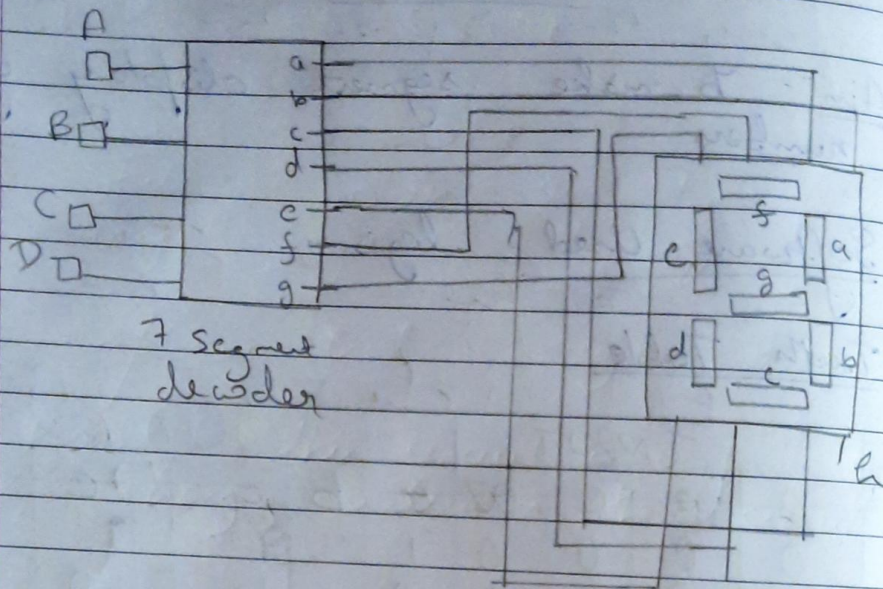 A
B
C
D
a
b
c
d
e
f
g
7 segment
decoder
f
e
a
g
d
b
c
h